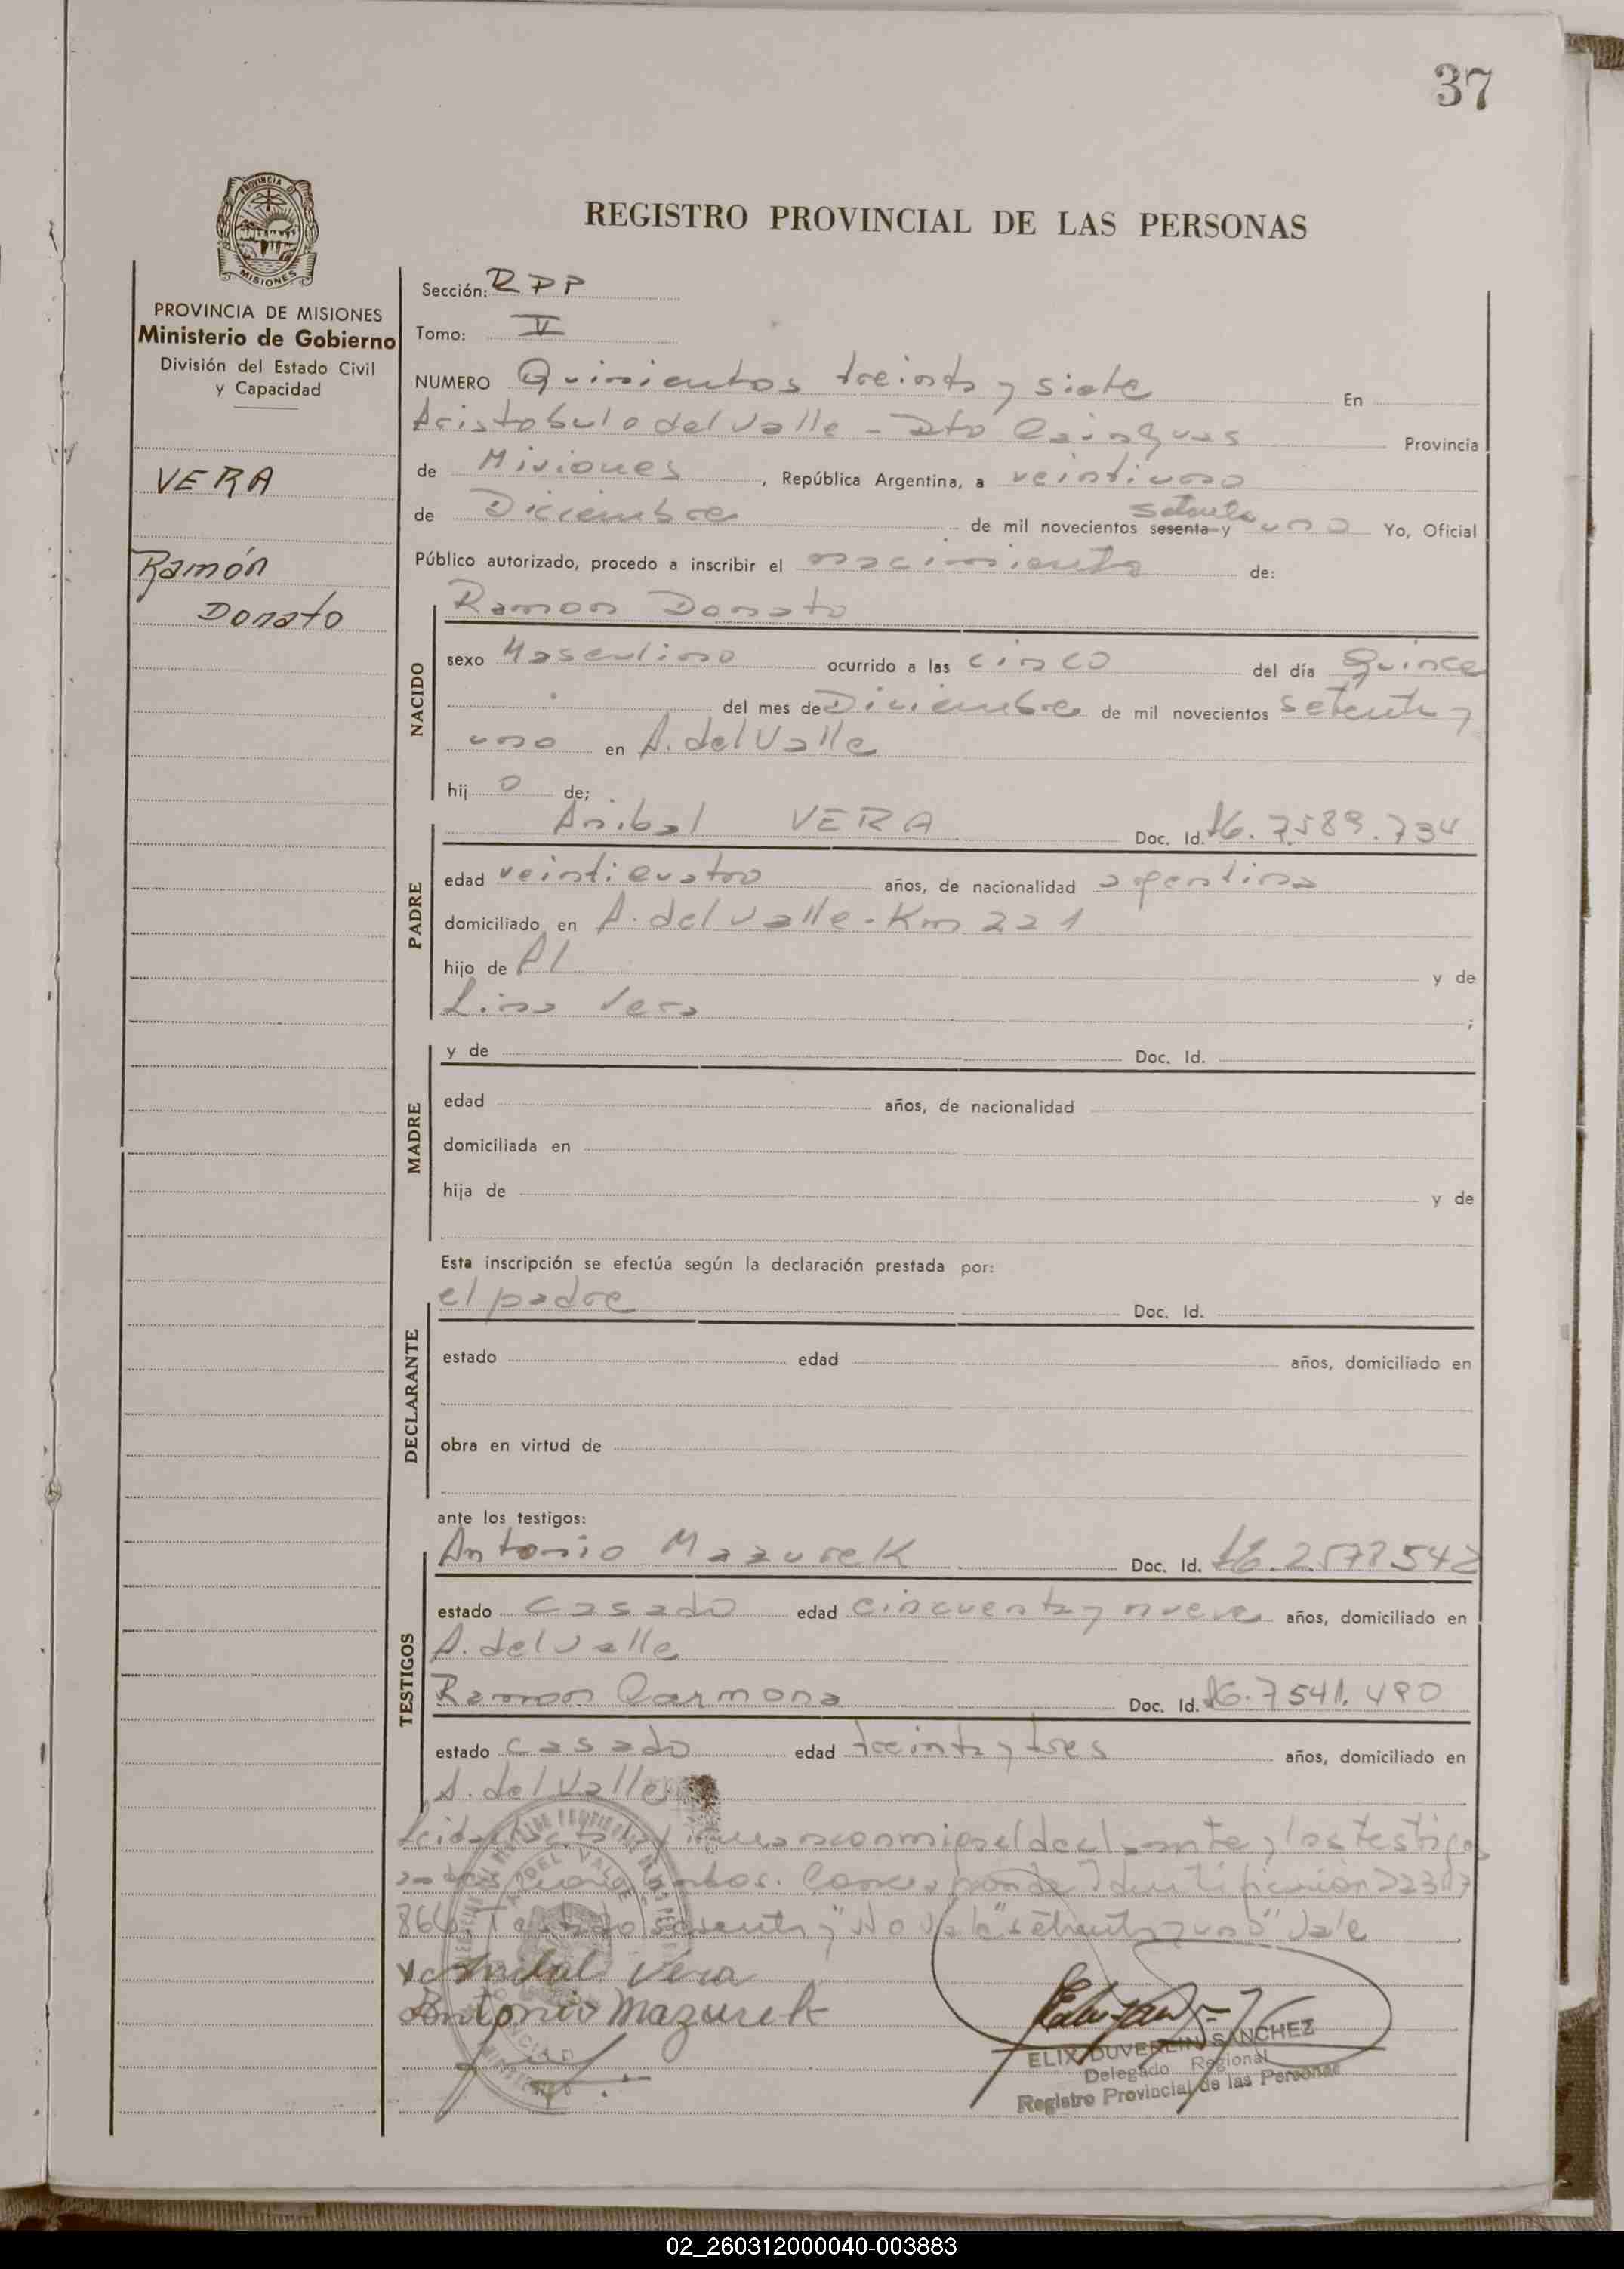 37
PROVINCIA DE
MISIONES
REGISTRO PROVINCIAL DE LAS PERSONAS
PROVINCIA DE MISIONES
Ministerio de Gobierno
División del Estado Civil
y Capacidad
VERA
Ramón
Donato
Sección: RPP
Tomo: V
NUMERO Quinientos treinta y siete En
Aristobulo del Valle - Dto Cainguas Provincia
de Misiones, República Argentina, a veintiuno
de Diciembre de mil novecientos sesenta y setenta uno Yo, Oficial
Público autorizado, procedo a inscribir el nacimiento de:
NACIDO
Ramon Donato
sexo Masculino ocurrido a las cinco del día Quince
del mes de Diciembre de mil novecientos setenta y
uno en A. del Valle
hijo de;
PADRE
Anibal VERA Doc. Id. 7.589.734
edad veinticuatro años, de nacionalidad argentina
domiciliado en A. del Valle - Km 221
hijo de y de
Lina Vera ;
MADRE
y de Doc. Id.
edad años, de nacionalidad
domiciliada en
hija de y de
Esta inscripción se efectúa según la declaración prestada por:
DECLARANTE
el padre Doc. Id.
estado edad años, domiciliado en
obra en virtud de
ante los testigos:
TESTIGOS
Antonio Mazurek Doc. Id. 2578542
estado casado edad cincuenta y nueve años, domiciliado en
A. del Valle
Ramon Carmona Doc. Id. 7541.490
estado casado edad treinta y tres años, domiciliado en
A. del Valle
Leida el acta la firman conmigo el declarante y los testigos
ambos. Corresponde Identificación 22307
864. Testado "sesenta y" No Vale "setenta y uno" Vale
Anibal Vera
Antonio Mazurek
ELIX DUVERLIN SANCHEZ
Delegado Regional
Registro Provincial de las Personas
02_260312000040-003883